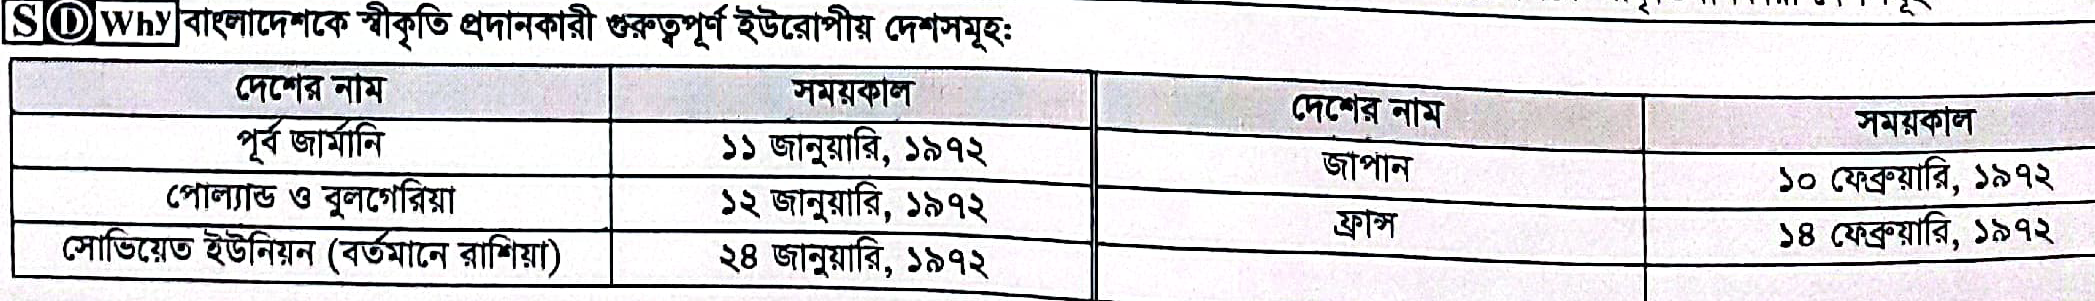 S D Why বাংলাদেশকে স্বীকৃতি প্রদানকারী গুরুত্বপূর্ণ ইউরোপীয় দেশসমূহ:
দেশের নাম সময়কাল দেশের নাম সময়কাল
পূর্ব জার্মানি ১১ জানুয়ারি, ১৯৭২ জাপান ১০ ফেব্রুয়ারি, ১৯৭২
পোল্যান্ড ও বুলগেরিয়া ১২ জানুয়ারি, ১৯৭২ ফ্রান্স ১৪ ফেব্রুয়ারি, ১৯৭২
সোভিয়েত ইউনিয়ন (বর্তমানে রাশিয়া) ২৪ জানুয়ারি, ১৯৭২